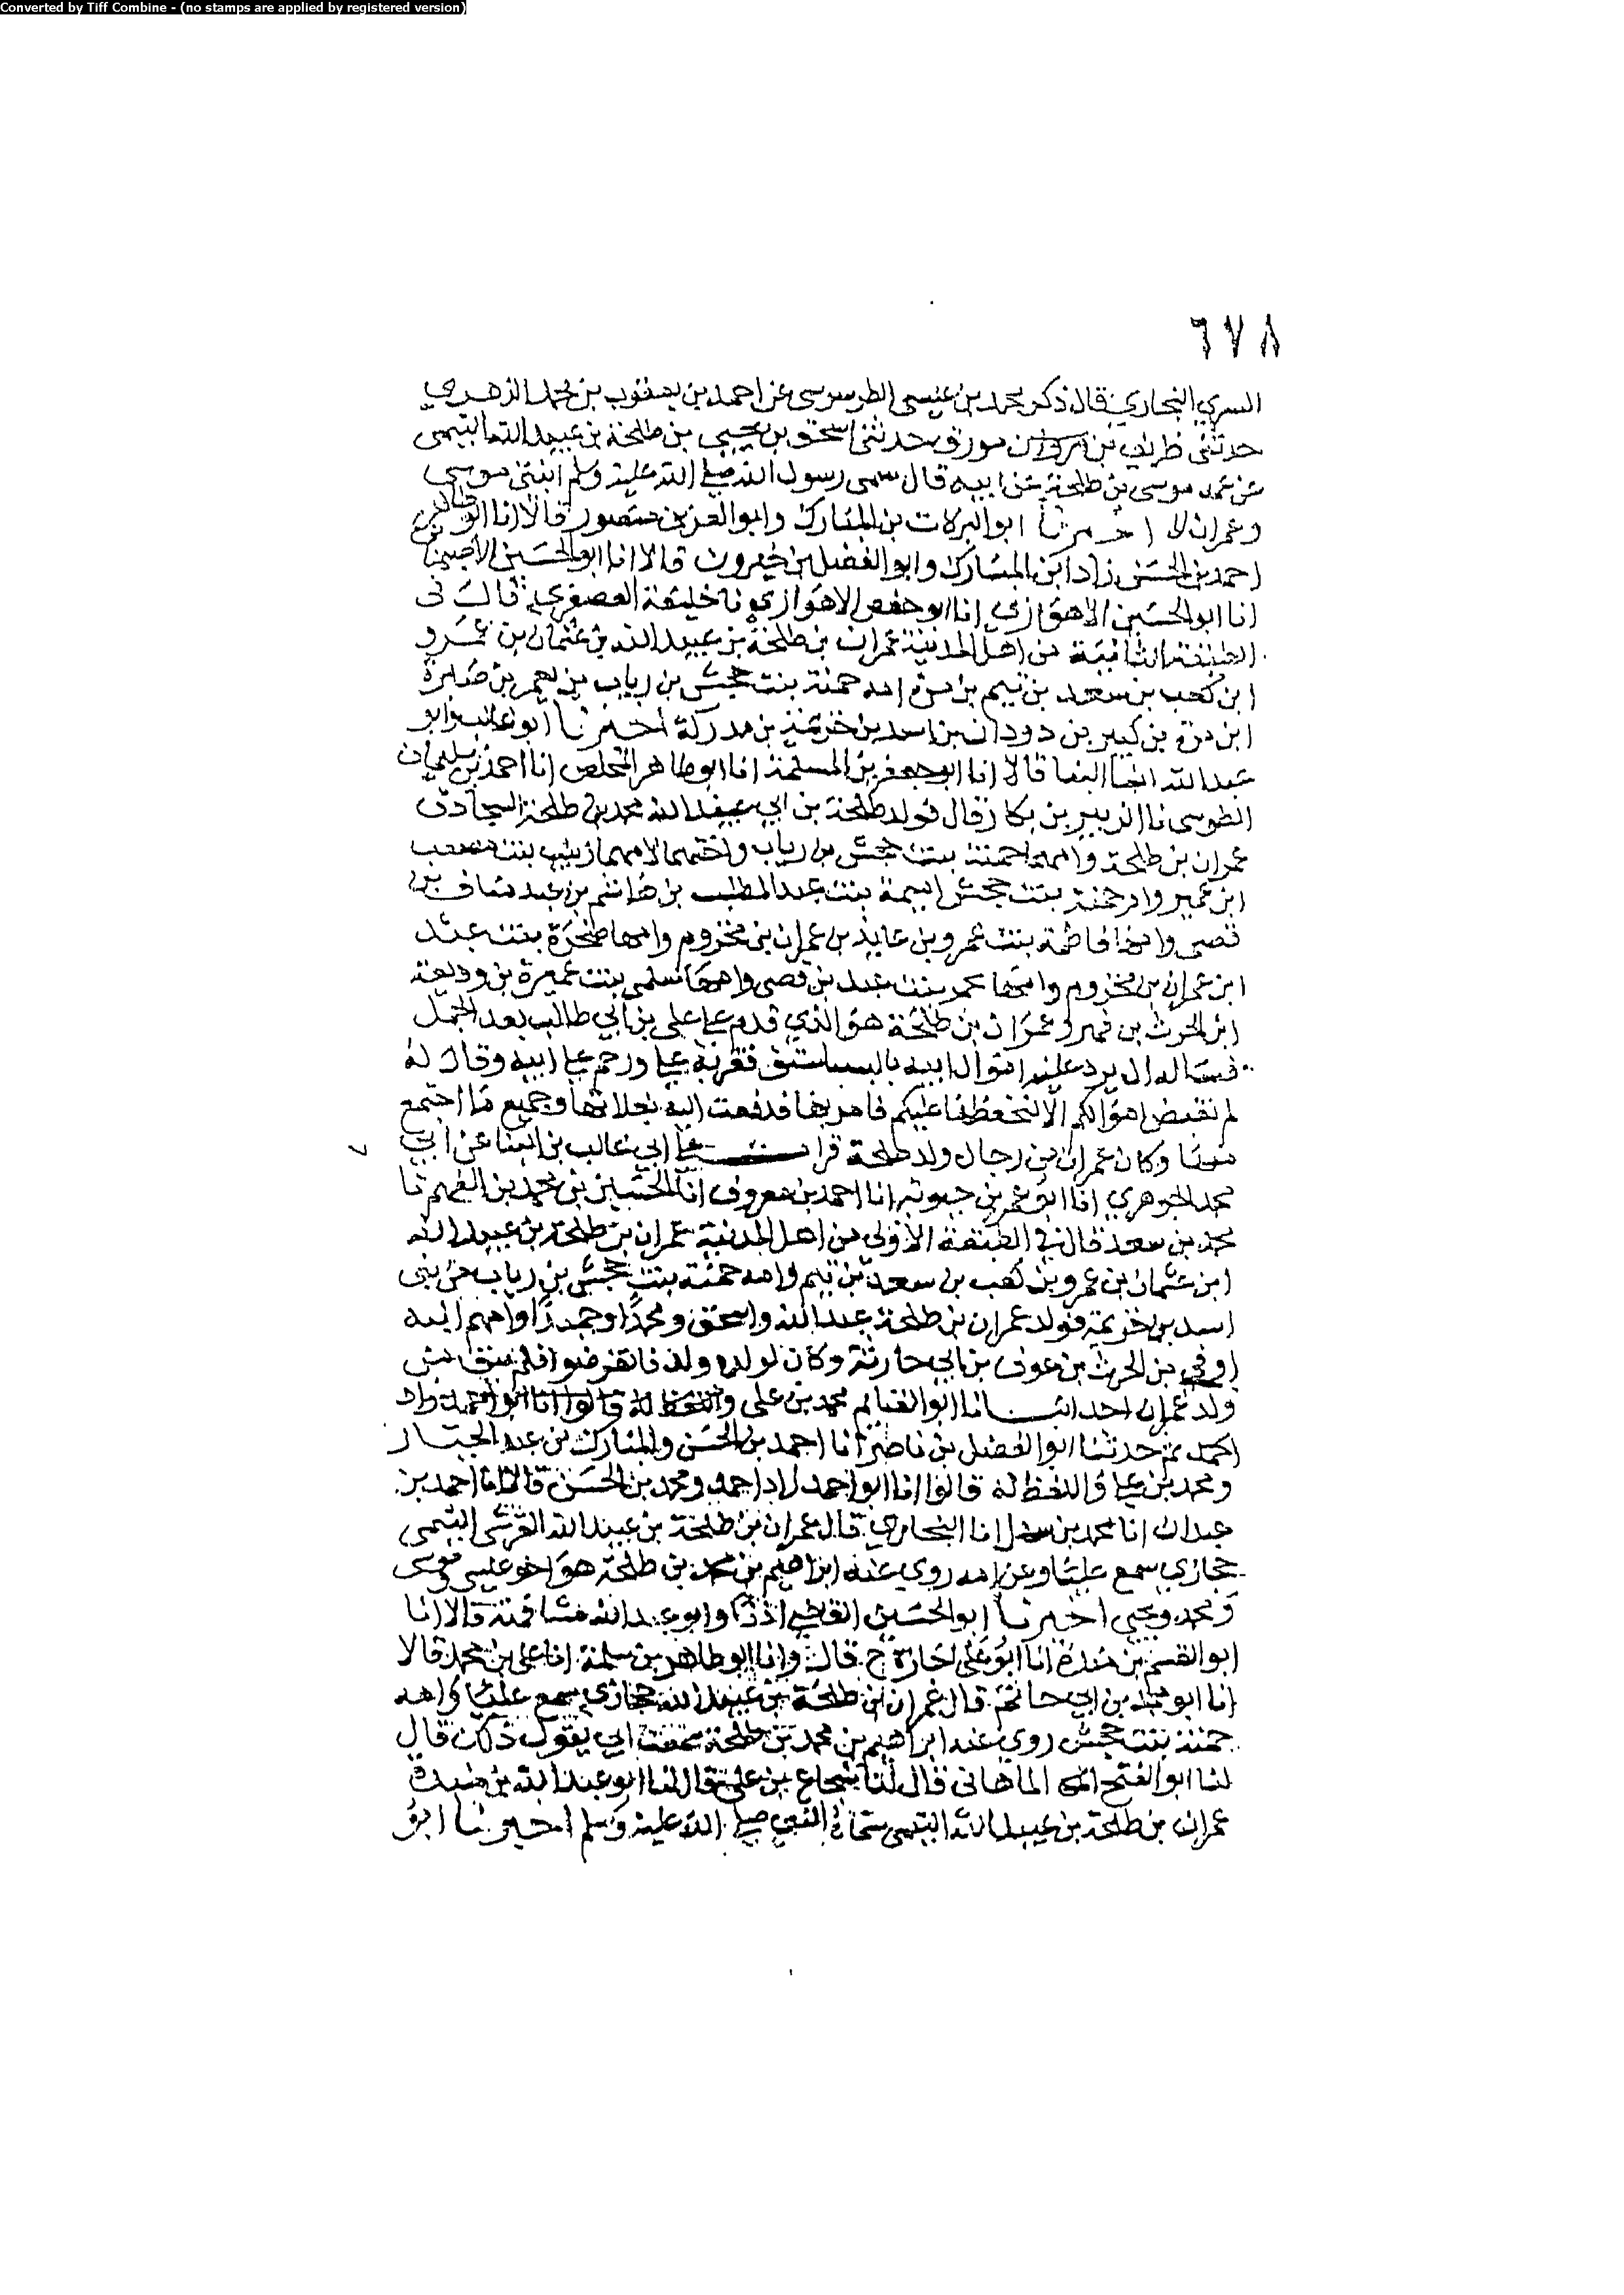 Converted by Tiff Combine - (no stamps are applied by registered version)
٦٧٨
السري البخاري قال ذكر محمد بن عيسى الطرسوسي عن احمد بن يعقوب بن محمد الزهري
حدثني طريف بن مورق حدثني اسحق بن يحيى بن طلحة بن عبيد الله التيمي
عن عمه موسى بن طلحة عن ابيه قال سمى رسول الله صلى الله عليه وسلم ابني موسى
وعمران اخبرنا ابو البركات بن المبارك وابو العز بن منصور قالا انا ابو طاهر
احمد بن الحسن زاد ابن المبارك وابو الفضل بن خيرون قالا انا ابو الحسين الاصبهاني
انا ابو الحسين الاهوازي انا ابو حفص الاهوازي نا خليفة العصفري قال في
الطبقة الثانية من اهل المدينة عمران بن طلحة بن عبيد الله بن عثمان بن عمرو
ابن كعب بن سعد بن تيم بن مرة امه حمنة بنت جحش بن رياب بن يعمر بن صبرة
ابن مرة بن كبير بن دودان بن اسد بن خزيمة بن مدركة اخبرنا ابو غالب وابو
عبد الله ابنا البنا قالا انا ابو جعفر بن المسلمة انا ابو طاهر المخلص انا احمد بن سليمان
الطوسي نا الزبير بن بكار قال فولد طلحة بن عبيد الله محمد بن طلحة السجاد
عمران بن طلحة وامهما حمنة بنت جحش بن رياب واختهما لامهما زينب بنت مصعب
ابن عمير وام حمنة بنت جحش اميمة بنت عبد المطلب بن هاشم بن عبد مناف بن
قصي وامها فاطمة بنت عمرو بن عايذ بن عمران بن مخزوم وامها صخرة بنت عبد
ابن عمران بن مخزوم وامها تخمر بنت عبد بن قصي وامها سلمى بنت عميرة بن وديعة
ابن الحرث بن فهر وعمران بن طلحة هو الذي قدم على علي بن ابي طالب بعد الجمل
فساله ان يرد عليه اموال ابيه فقربه علي ورحم على ابيه وقال له
لم نقبض اموالكم الا لنحفظها عليكم فامر بها فدفعت اليه بغلاتها وجميع ما اجتمع
منها وكان عمران من رجال ولد طلحة قرات على ابي غالب بن البنا عن ابي
محمد الجوهري انا ابو عمر بن حيويه انا احمد بن معروف انا الحسين بن محمد بن الفهم نا
محمد بن سعد قال في الطبقة الاولى من اهل المدينة عمران بن طلحة بن عبيد الله
ابن عثمان بن عمرو بن كعب بن سعد بن تيم وامه حمنة بنت جحش بن رياب من بني
اسد بن خزيمة فولد عمران بن طلحة عبد الله واسحق ومحمدا وحميدا وامهم ابنه
اوفى بن الحرث بن عوف بن ابي حارثة وكان لولده ولد فانقرضوا فلم يبق من
ولد عمران احد انا ابو الغنايم محمد بن علي واللفظ له قالوا انا ابو احمد زاد
احمد ثم حدثنا ابو الفضل بن ناصر انا احمد بن الحسن والمبارك بن عبد الجبار
ومحمد بن علي واللفظ له قالوا انا ابو احمد زاد احمد ومحمد بن الحسن قالا انا احمد بن
عبدان انا محمد بن سهل انا البخاري قال عمران بن طلحة بن عبيد الله القرشي التيمي
حجازي سمع عليا وعن امه روى عنه ابراهيم بن محمد بن طلحة هو اخو عيسى وموسى
ومحمد ويحيى اخبرنا ابو الحسين القاضي اذنا وابو عبد الله مشافهة قالا انا
ابو القسم بن مندة انا ابو علي اجازة ح قال وانا ابو طاهر بن سلمة انا علي بن محمد قالا
انا ابو محمد بن ابي حاتم قال عمران بن طلحة بن عبيد الله حجازي سمع عليا وامه
حمنة بنت جحش روى عنه ابراهيم بن محمد بن طلحة سمعت ابي يقول ذلك قال
لنا ابو الفتح الماهاني قال لنا شجاع بن علي قال لنا ابو عبد الله بن مندة
عمران بن طلحة بن عبيد الله التيمي سماه النبي صلى الله عليه وسلم اخبرنا ابو